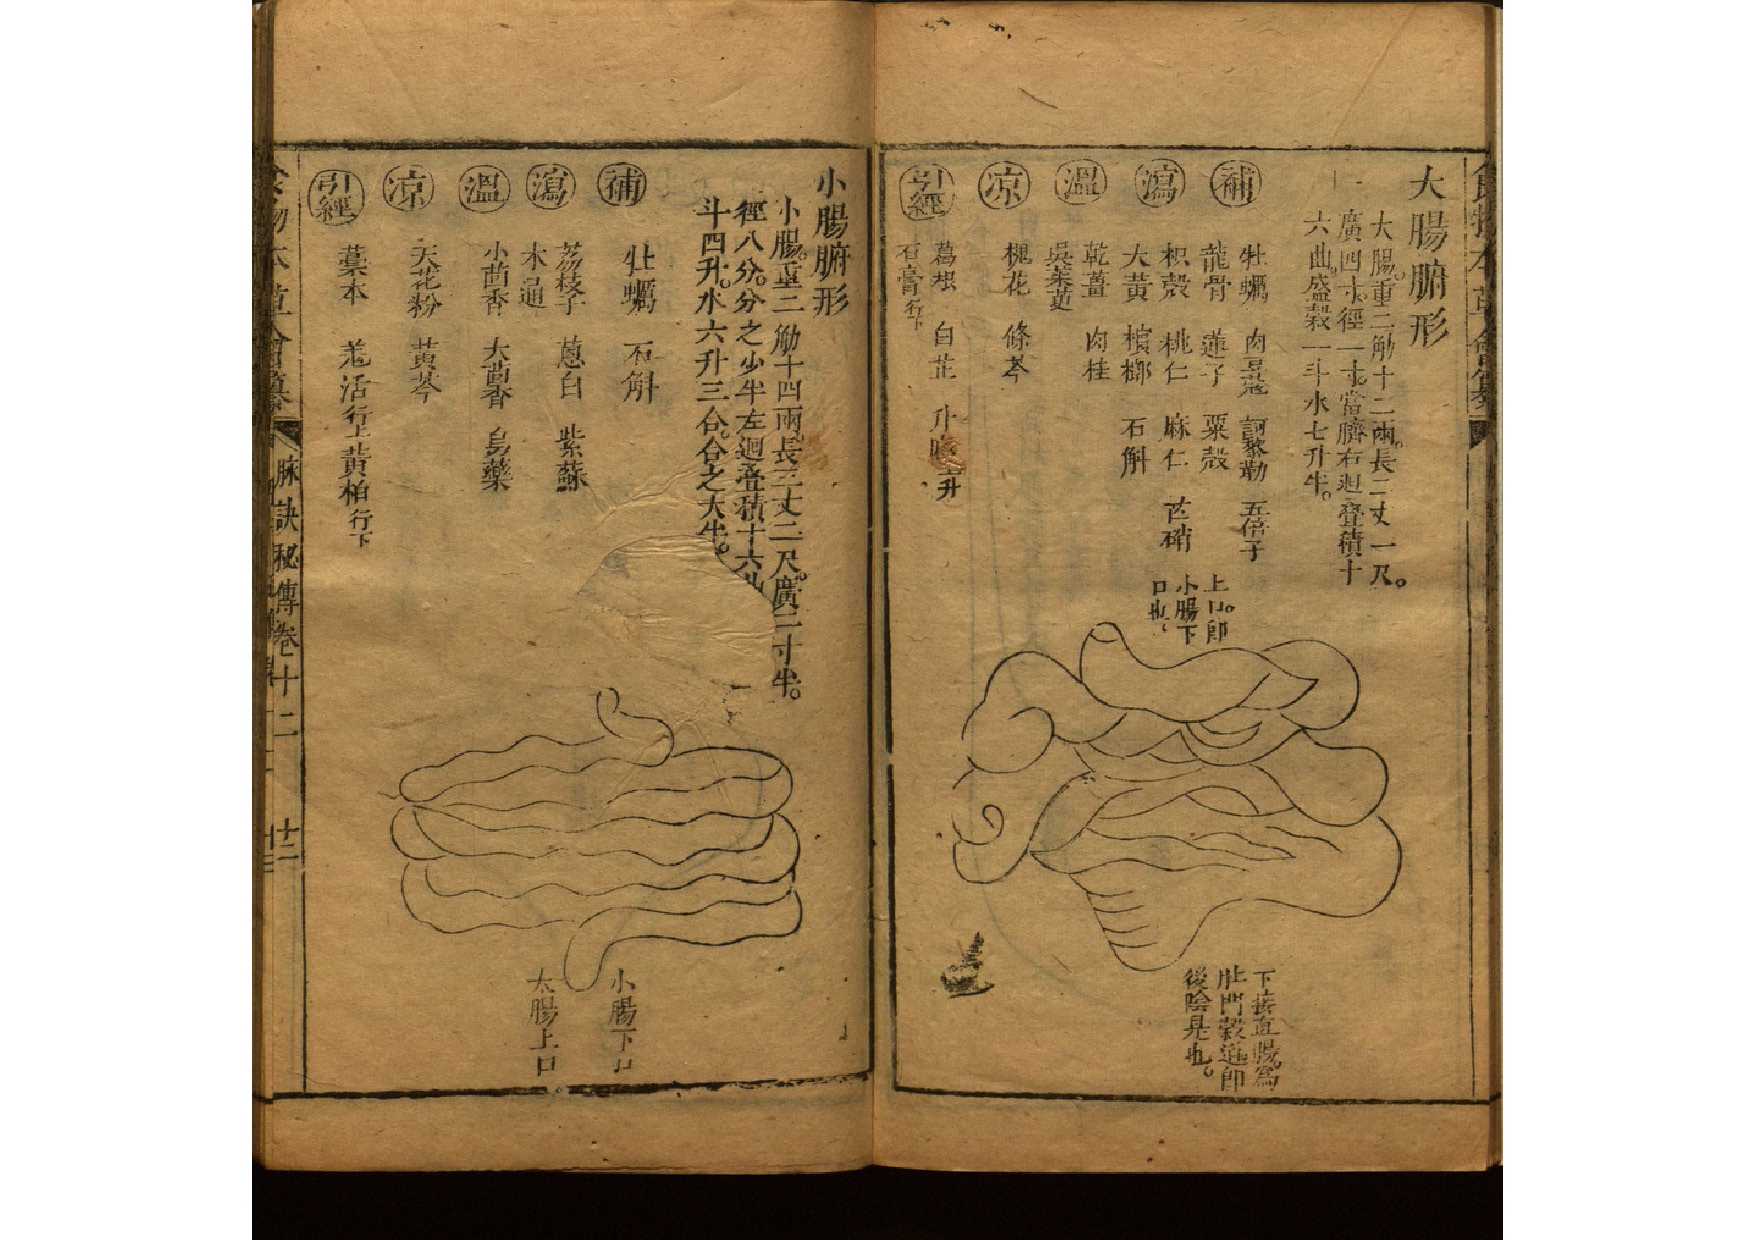 大腸腑形
大腸。重二觔十二兩。長二丈一尺。
廣四寸。徑一寸。當臍右迴疊積十
六曲。盛穀一斗水七升半。
補
牡蠣 肉豆蔻 訶黎勒 五倍子
龍骨 蓮子 粟殼
瀉
枳殼 桃仁 麻仁 芒硝
大黃 檳榔 石斛
溫
乾薑 肉桂
吳茱萸
凉
槐花 條芩
引經
葛根 白芷 升麻上升
石膏行下
上口。即
小腸下
口也。
下接直腸為
肛門穀道即
後陰是也。
小腸腑形
小腸。重二觔十四兩。長三丈二尺。廣二寸半。
徑八分。分之少半左迴疊積十六曲
斗四升。水六升三合。合之大半。
補
牡蠣 石斛
瀉
荔枝子 蔥白 紫蘇
木通
溫
小茴香 大茴香 烏藥
凉
天花粉 黃芩
引經
藁本 羗活行上黃柏行下
小腸下口
大腸上口
脉訣秘傳卷十二 十二